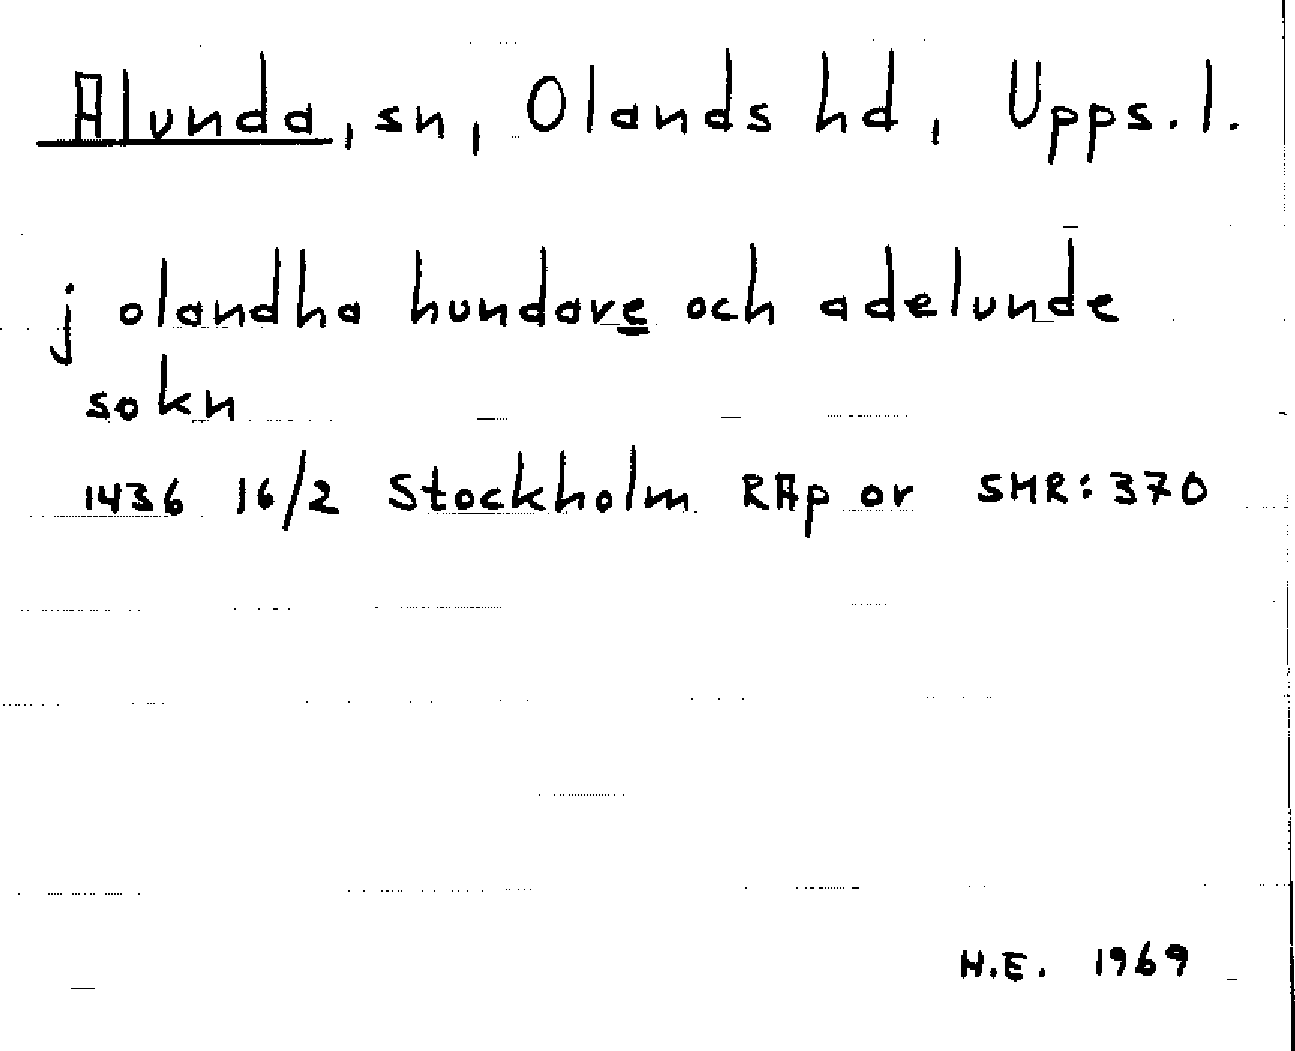 Alunda, sn, Olands hd, Upps. l.
j olandha hundare och adelunde
sokn
1436 16/2 Stockholm RAp or SMR: 370
H.E. 1969